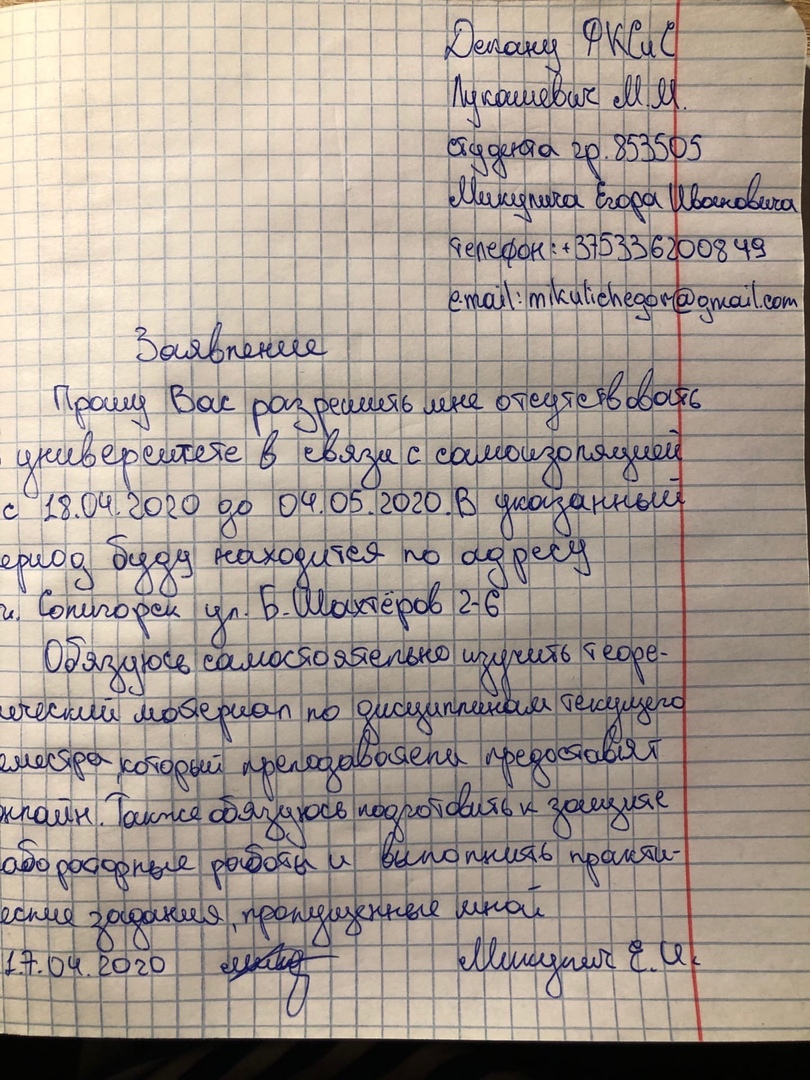 Декану ФКСиС
Лукашевич М.М.
студента гр. 853505
Микулича Егора Ивановича
телефон: +375336200849
email: mikulichegor@gmail.com
Заявление
Прошу Вас разрешить мне отсутствовать
университете в связи с самоизоляцией
с 18.04.2020 до 04.05.2020. В указанный
ериод буду находится по адресу
г. Солигорск ул. Б. Шахтёров 2-6
Обязуюсь самостоятельно изучить теоре-
ический материал по дисциплинам текущего
еместра, который преподаватели предоставят
нлайн. Также обязуюсь подготовить к защите
абораторные работы и выполнить практи-
еские задания, пропущенные мной
17.04.2020 Микулич Е.И.